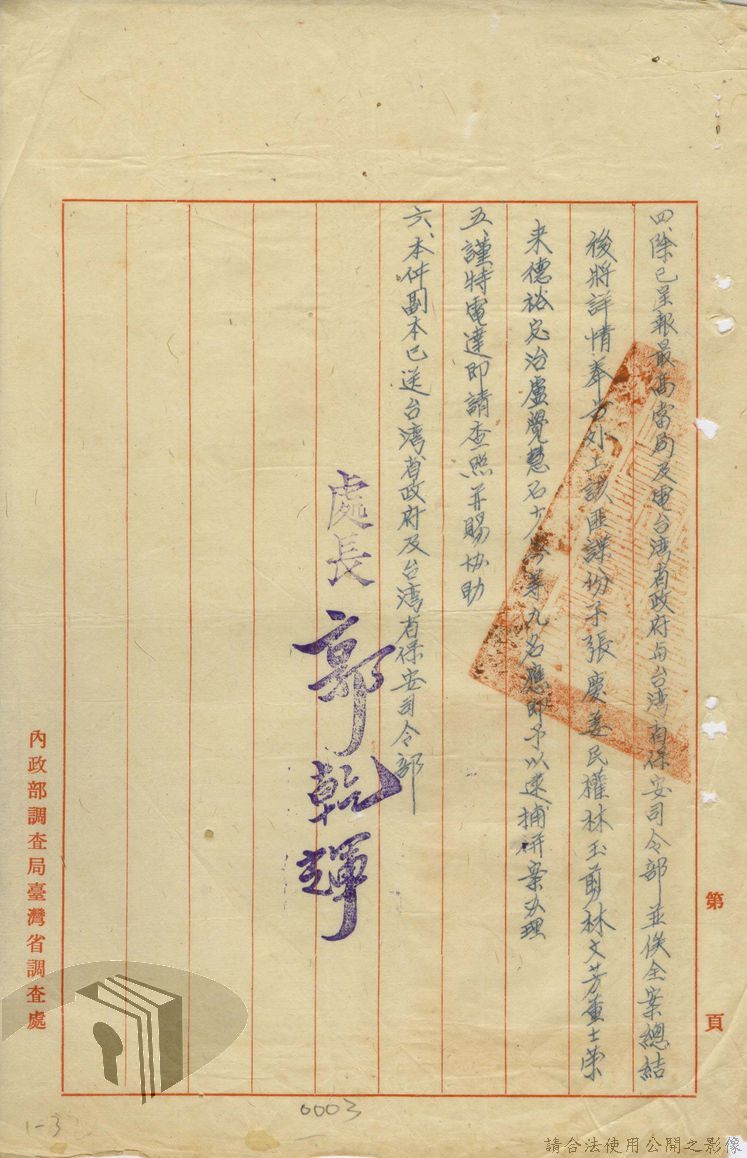 四、除已呈報最高當局及電台湾省政府与台湾省保安司令部並俟全案總結
後將詳情奉 外上該匪諜份子張慶姜民權林玉剪林文芳董士榮
来德裕 治盧覺慧石 等九名應即予以逮捕併案办理
五、謹特電達即請查照並賜协助
六、本件副本已送台湾省政府及台湾省保安司令部
處長 郭乾輝
第 頁
內政部調查局臺灣省調查處
0003
1-3
請合法使用公開之影像